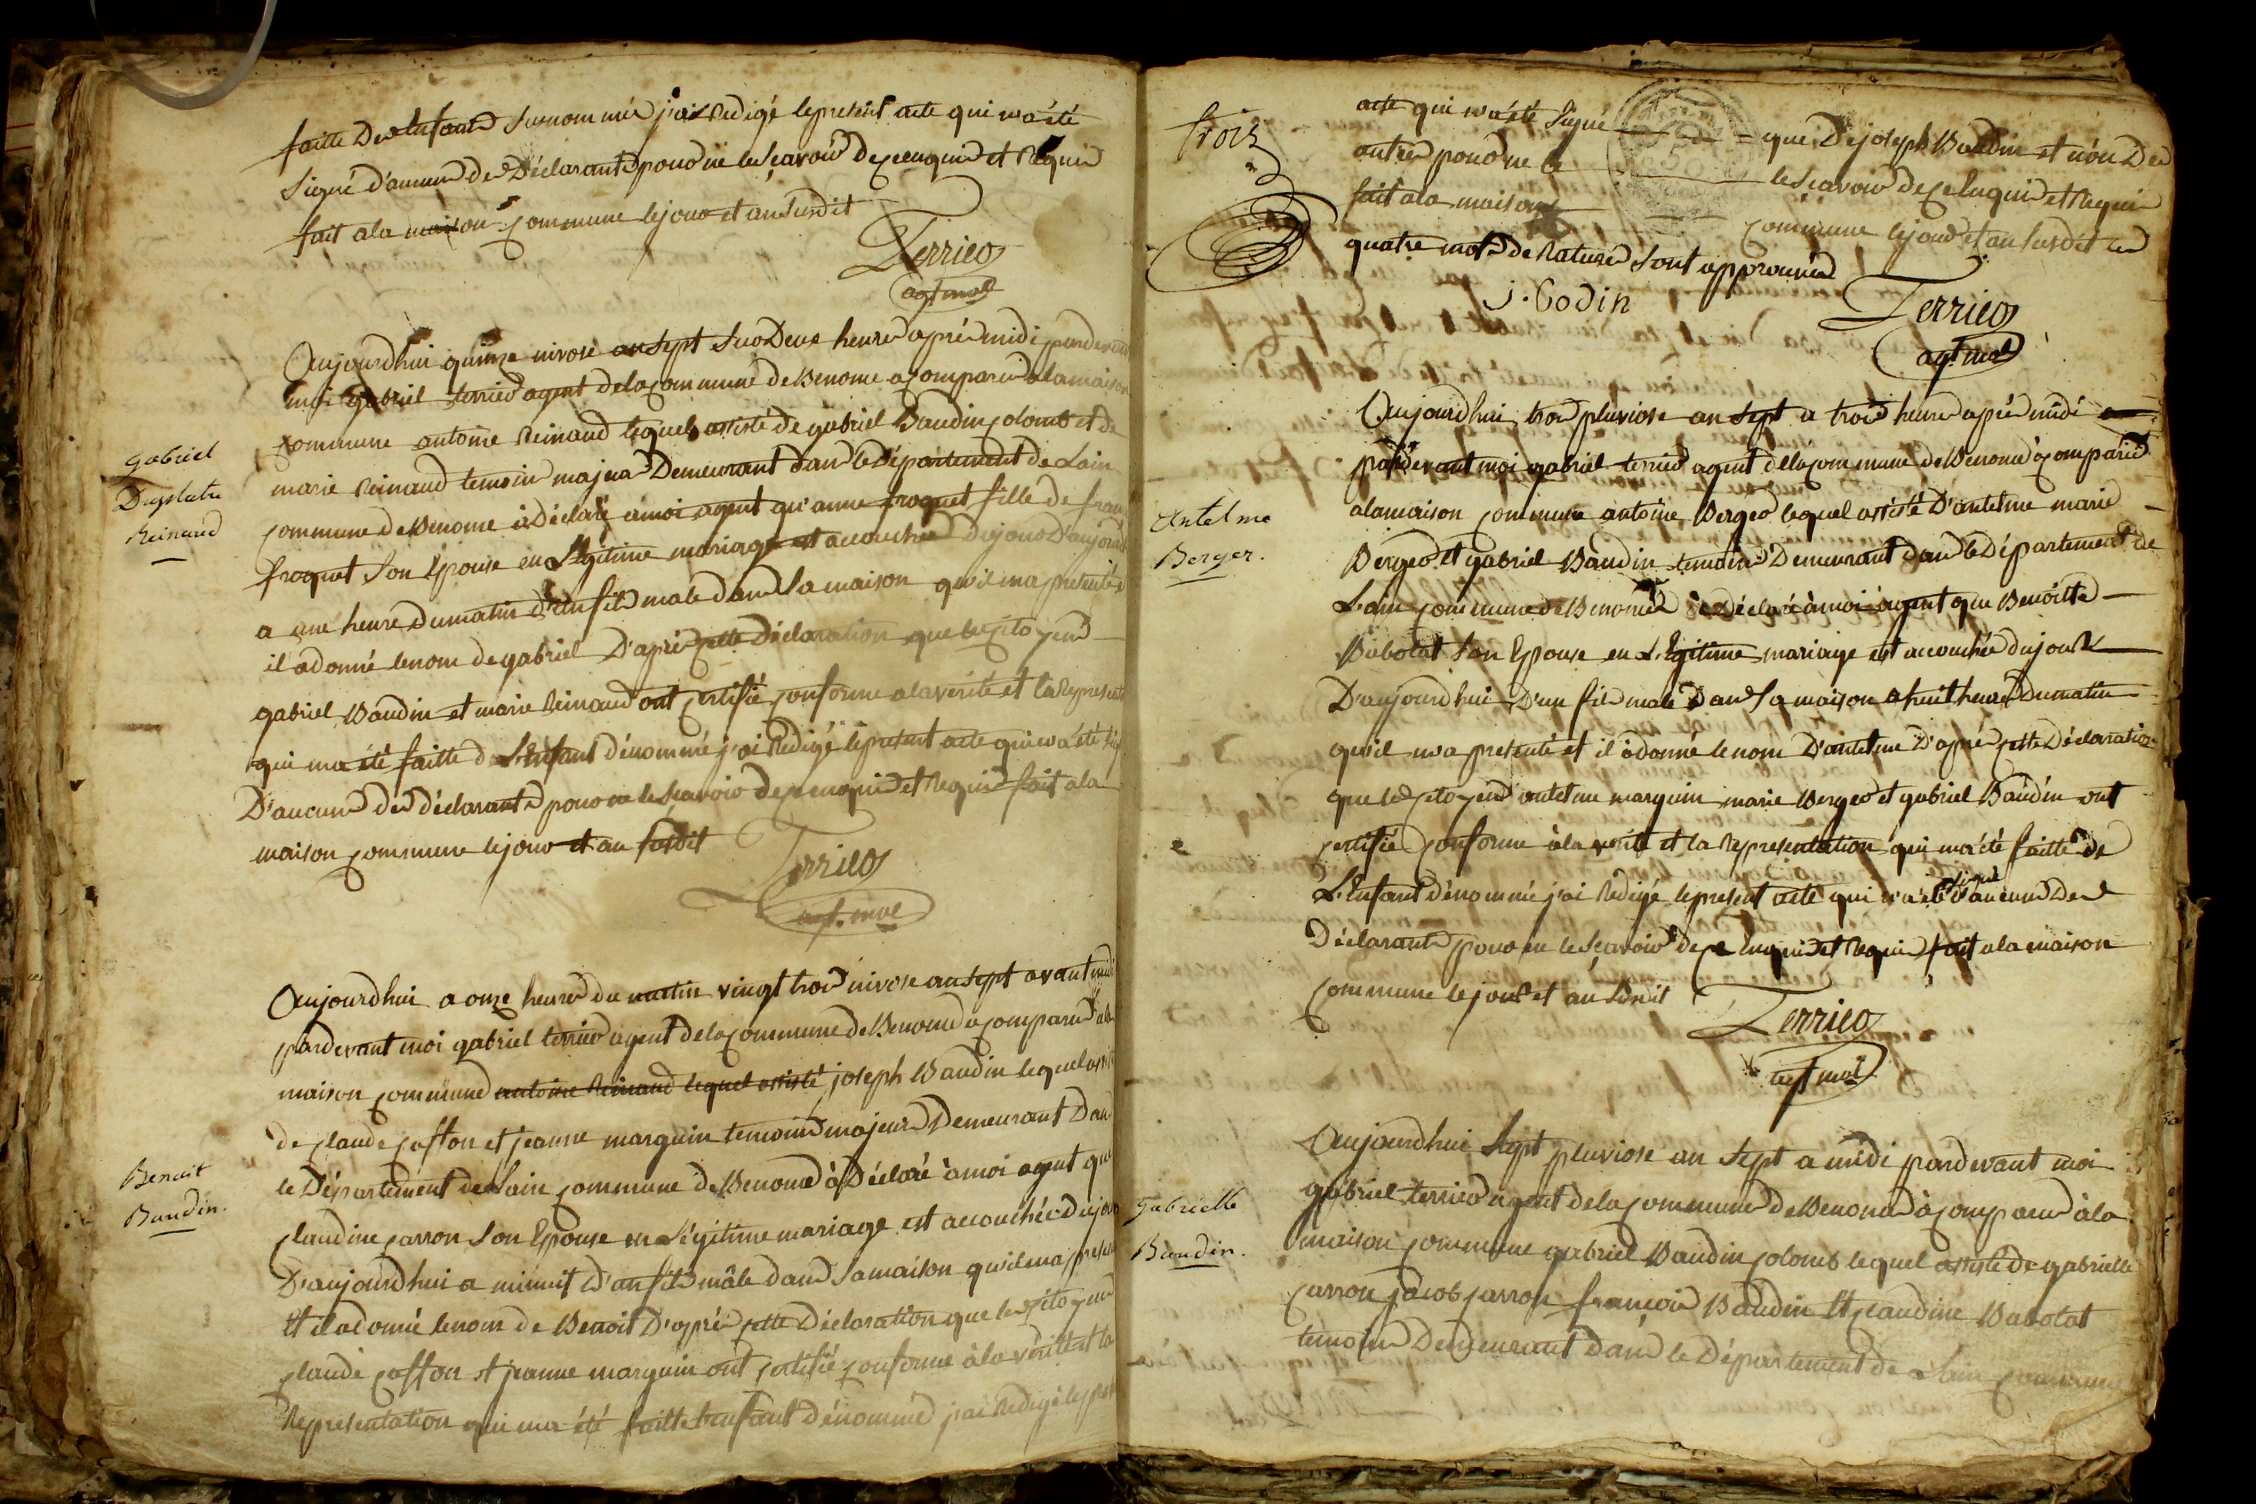 faitte De lenfant Susnommé j'ai Redigé lepresent acte qui n'a été
Signé d'aucun des Déclarants pour ne lesçavoir dece enquis et Requis
fait ala maison commune lejour et an Susdit
Terrier
agt mal
Aujourdhui quinze nivose an Sept Sur Deux heures aprés midi pardevant
moi gabriel terrier agent delacommune de Benome acomparu alamaison
commune antoine Reinaud lequel assisté de gabriel Baudin colomb et de
marie Reinaud temoins majeurs Demeurant dans le Département de Lain
commune de Benome àdéclaré àmoi agent qu'anne froquet fille de fran
froquet Son Epouse en Légitime mariage est accouchée dujour D'aujourd
a une heure dumatin d'un fils male dans Sa maison qu'il ma presenté
il adonné lenom de gabriel D'aprés cette Déclaration que les citoyens
gabriel Baudin et marie Reinaud ont certifié conforme alaverité et la Represent
qui ma été faitte de L'Enfant dénommé j'ai Redigé lepresent acte qui n'a été Sig
D'aucuns des déclarants pour ne lesçavoir dece enquis et Requis fait ala
maison commune lejour et an Susdit
Terrier
agt. mal
gabriel
Duplatre
Reinaud
Aujourdhui a onze heures du matin vingt trois nivose an Sept avant midi
pardevant moi gabriel terrier agent delacommune de Benome acomparu ala
maison commune antoine Reinaud lequel assisté joseph Baudin lequel assisté
de claude coffon et jeanne marguin temoins majeurs Demeurant Dans
le Département de Lain commune de Benome à Déclaré àmoi agent que
claudine carron Son Epouse en Légitime mariage est accouchée dujour
D'aujourdhui a minuit d'un fils mâle dans Samaison qu'il ma presen
Et il adonné lenom de Benoit D'aprés cette Déclaration que les citoyens
claude coffon et jeanne marguin ont certifié conforme àla verité et la
Representation qui ma été faitte lenfant dénommé j'ai Redigé lepres
Benoit
Baudin.
trois
acte qui n'a été Signé que De joseph Baudin et non Des
autres pour ne le sçavoir de ce enquis et Requis
fait ala maison commune lejour et an Susdit les
quatre mots de Rature Sont approuvés
J. Bodin
Terrier
agt mal
Aujourdhui trois pluviose an Sept a trois heures aprés midi
pardevant moi gabriel terrier agent dela commune de Benome àcomparu
alamaison commune antoine Berger lequel assisté D'antelme marie
Berger et gabriel Baudin temoins Demeurant dans le Département de
L'ain commune de Benome à Déclaré àmoi agent que Benoitte
Babolat Son Epouse en Légitime mariage est accouchée dujour
D'aujourdhui D'un fils male Dans Sa maison a huit heures Dumatin
qu'il ma presenté et il àdonné lenom D'antelme D'aprés cette Déclaration
que les citoyens antelme marguin marie Berger et gabriel Baudin ont
certifié conforme àla verité et la Representation qui ma été faitte de
L'Enfant dénommé j'ai Redigé lepresent acte qui n'a été Signé d'aucuns Des
Déclarants pour ne lesçavoir dece enquis et Requis fait ala maison
commune lejour et an Susdit
Terrier
agt mal
Antelme
Berger.
Aujourdhui Sept pluviose an Sept a midi pardevant moi
gabriel terrier agent dela commune de Benome àcomparu àla
maison commune gabriel Baudin colomb lequel assisté de gabrielle
carron jacob carron françois Baudin Et claudine Babolat
temoins Demeurant Dans le Département de L'ain commune
Gabrielle
Baudin.